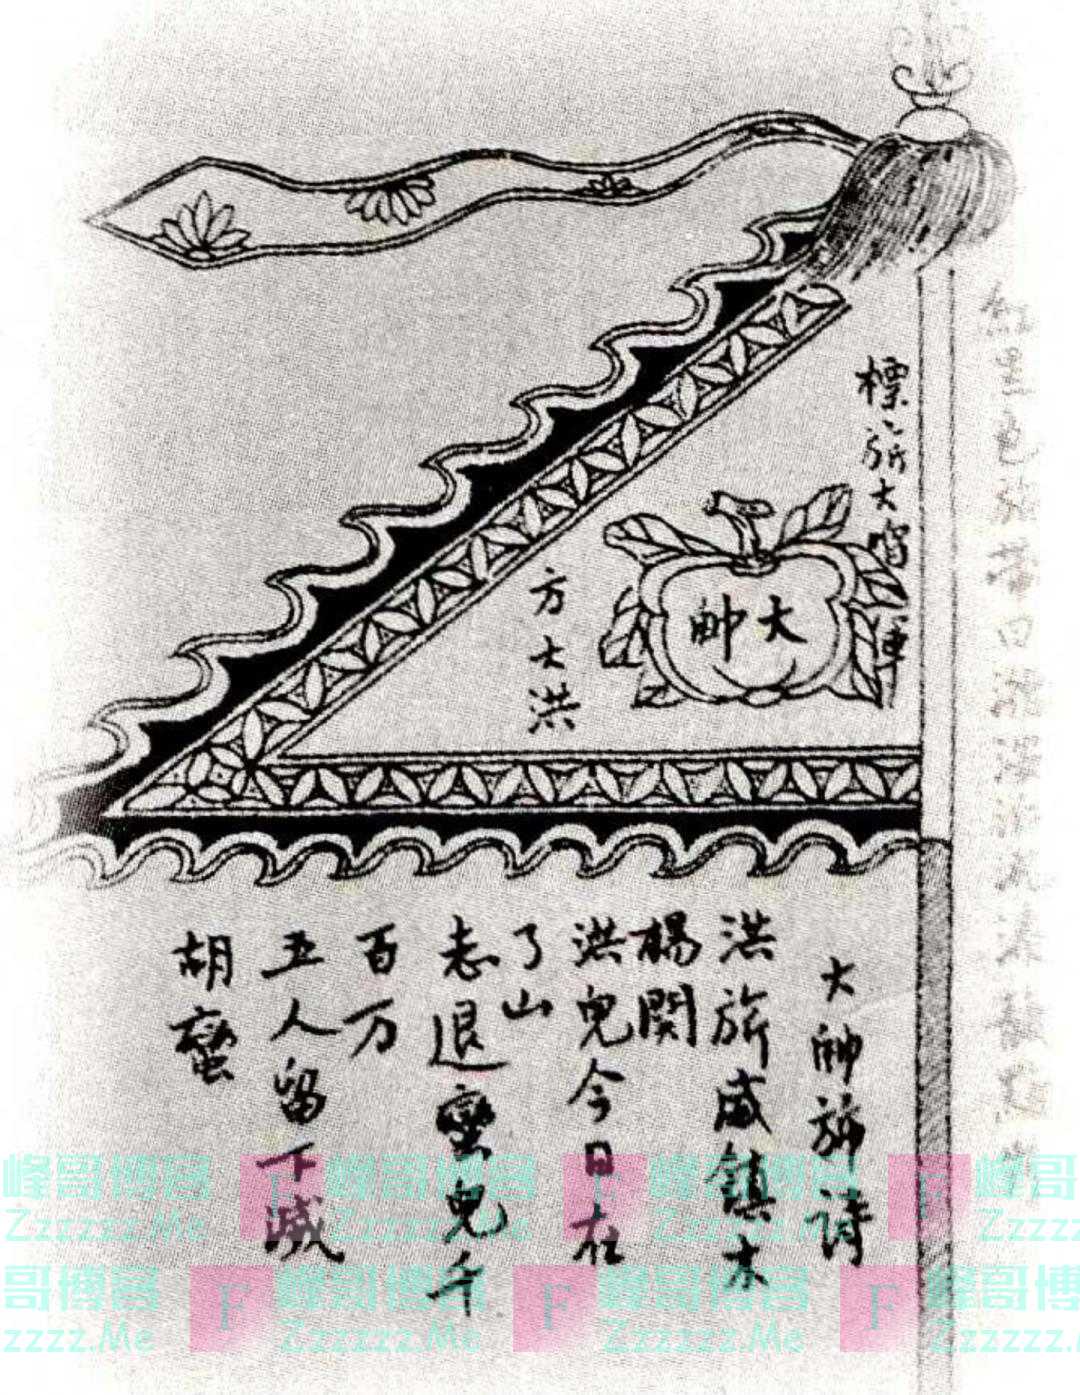 標旂大
大帥
方大洪
大帥旂詩
洪旂威鎮木
楊関
洪兒今日在
了山
志退蠻兒千
百万
五人留下滅
胡蠻
峰哥博客 F 峰哥博客 F 峰哥博客 F 峰哥
Zzzzzz.Me Zzzzzz.Me Zzzzzz.Me Zzzzz
哥博客 F 峰哥博客 F 峰哥博客 F 峰哥博
zzzz.Me Zzzzzz.Me Zzzzzz.Me Zzzzzz.